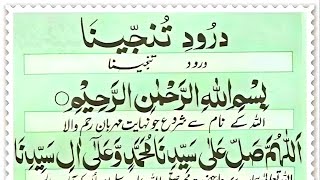 درُودِ تُنجِّینَا
درود تنجینا
بِسْمِ اللّٰهِ الرَّحْمٰنِ الرَّحِیْمِ
اللہ کے نام سے شروع جو نہایت مہربان رحم والا
اَللّٰهُمَّ صَلِّ عَلٰی سَیِّدِنَا مُحَمَّدٍ وَّ عَلٰٓی اٰلِ سَیِّدِنَا